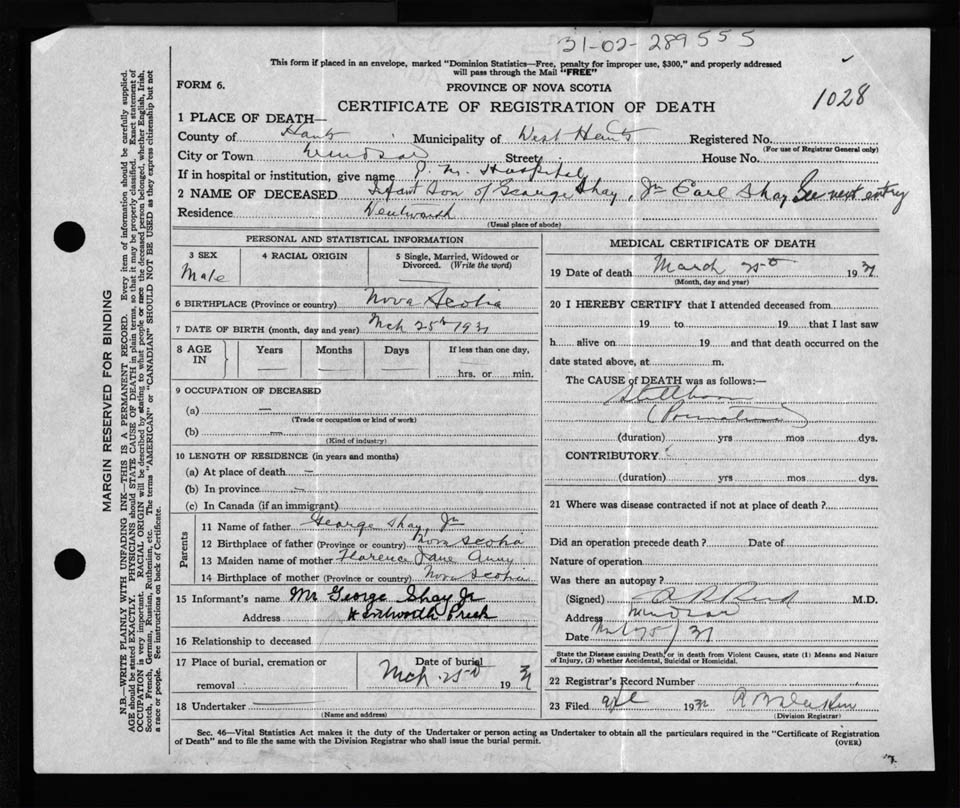 31-02-289555
This form if placed in an envelope, marked "Dominion Statistics—Free, penalty for improper use, $300," and properly addressed
will pass through the Mail "FREE"
FORM 6.
PROVINCE OF NOVA SCOTIA
1028
CERTIFICATE OF REGISTRATION OF DEATH
1 PLACE OF DEATH—
County of Hants Municipality of West Hants Registered No.
(For use of Registrar General only)
City or Town Windsor Street House No.
If in hospital or institution, give name P. M. Hospital
2 NAME OF DECEASED Infant Son of George Shay, Jr Earl Shay See next entry
Residence Wentworth
(Usual place of abode)
PERSONAL AND STATISTICAL INFORMATION
3 SEX 4 RACIAL ORIGIN 5 Single, Married, Widowed or
Divorced. (Write the word)
Male —
6 BIRTHPLACE (Province or country) Nova Scotia
7 DATE OF BIRTH (month, day and year) Mch 25th 1931
8 AGE IN Years Months Days If less than one day,
— — — hrs. or min.
9 OCCUPATION OF DECEASED
(a) —
(Trade or occupation or kind of work)
(b) —
(Kind of industry)
10 LENGTH OF RESIDENCE (in years and months)
(a) At place of death —
(b) In province —
(c) In Canada (if an immigrant)
Parents
11 Name of father George Shay, Jr
12 Birthplace of father (Province or country) Nova Scotia
13 Maiden name of mother Florence Jane
14 Birthplace of mother (Province or country) Nova Scotia
15 Informant's name Mr George Shay Jr
Address Wentworth Creek
16 Relationship to deceased
17 Place of burial, cremation or
removal
Date of burial
Mch 25th 1931
18 Undertaker —
(Name and address)
MEDICAL CERTIFICATE OF DEATH
19 Date of death March 25th 1931
(Month, day and year)
20 I HEREBY CERTIFY that I attended deceased from
19 to 19 that I last saw
h alive on 19 and that death occurred on the
date stated above, at m.
The CAUSE of DEATH was as follows:—
Stillborn
(Premature)
(duration) yrs mos dys.
CONTRIBUTORY
(duration) yrs mos dys.
21 Where was disease contracted if not at place of death?
Did an operation precede death? Date of
Nature of operation
Was there an autopsy?
(Signed) Reid M.D.
Address Windsor
Date 25/31
State the Disease causing Death, or in death from Violent Causes, state (1) Means and Nature
of Injury, (2) whether Accidental, Suicidal or Homicidal.
22 Registrar's Record Number
23 Filed apl 1931
(Division Registrar)
Sec. 46—Vital Statistics Act makes it the duty of the Undertaker or person acting as Undertaker to obtain all the particulars required in the "Certificate of Registration
of Death" and to file the same with the Division Registrar who shall issue the burial permit.
(OVER)
MARGIN RESERVED FOR BINDING
N.B.—WRITE PLAINLY WITH UNFADING INK—THIS IS A PERMANENT RECORD. Every item of information should be carefully supplied.
AGE should be stated EXACTLY. PHYSICIANS should STATE CAUSE OF DEATH in plain terms, so that it may be properly classified. Exact statement of
OCCUPATION is very important. RACIAL ORIGIN will be described by stating to what people or race the deceased person belonged, whether English, Irish,
Scotch, French, German, Russian, Ruthenian, etc. The terms "AMERICAN" or "CANADIAN" SHOULD NOT BE USED as they express citizenship but not
a race or people. See instructions on back of Certificate.